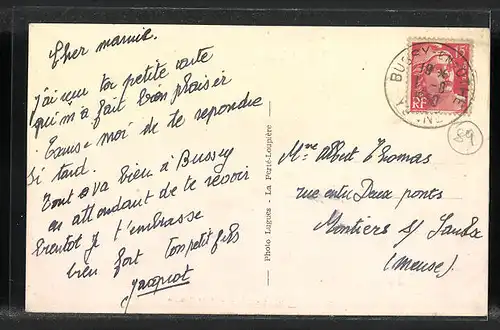 Cher mamie.
J'ai reçu ta petite carte
qui m'a fait bien plaisir
Excuse-moi de te repondre
si tard.
Tout va bien à Bussey
en attendant de te revoir
bientot je t'embrasse
bien fort Ton petit fils
Jacquot
Photo Lugues - La Ferté-Loupière
BUSSY-EN-OTHE
YONNE
15
RF
Mme Albert Thomas
rue entre Deux ponts
Montiers s/ Saulx
(Meuse).
89